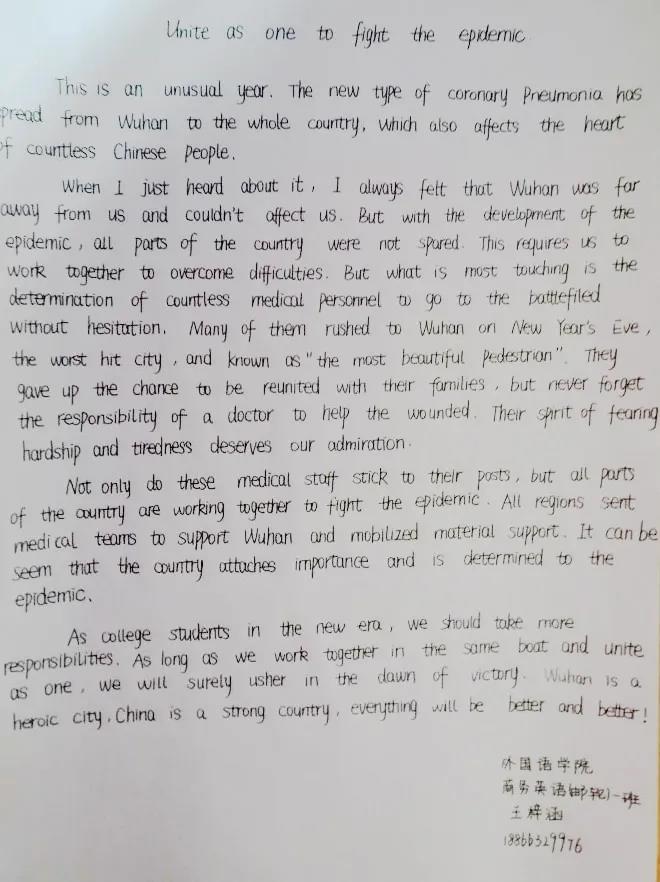 Unite as one to fight the epidemic
This is an unusual year. The new type of coronary Pneumonia has
pread from Wuhan to the whole country, which also affects the heart
f countless Chinese People.
When I just heard about it, I always felt that Wuhan was far
away from us and couldn't affect us. But with the development of the
epidemic, all parts of the country were not spared. This requires us to
work together to overcome difficulties. But what is most touching is the
determination of countless medical personnel to go to the battlefiled
without hesitation. Many of them rushed to Wuhan on New Year's Eve,
the worst hit city, and known as "the most beautiful Pedestrian". They
gave up the chance to be reunited with their families, but never forget
the responsibility of a doctor to help the wounded. Their spirit of fearing
hardship and tiredness deserves our admiration.
Not only do these medical staff stick to their posts, but all parts
of the country are working together to fight the epidemic. All regions sent
medical teams to support Wuhan and mobilized material support. It can be
seem that the country attaches importance and is determined to the
epidemic.
As college students in the new era, we should take more
responsibilities. As long as we work together in the same boat and unite
as one, we will surely usher in the dawn of victory. Wuhan is a
heroic city. China is a strong country, everything will be better and better!
外国语学院
商务英语(邮轮)一班
王梓涵
18866329976